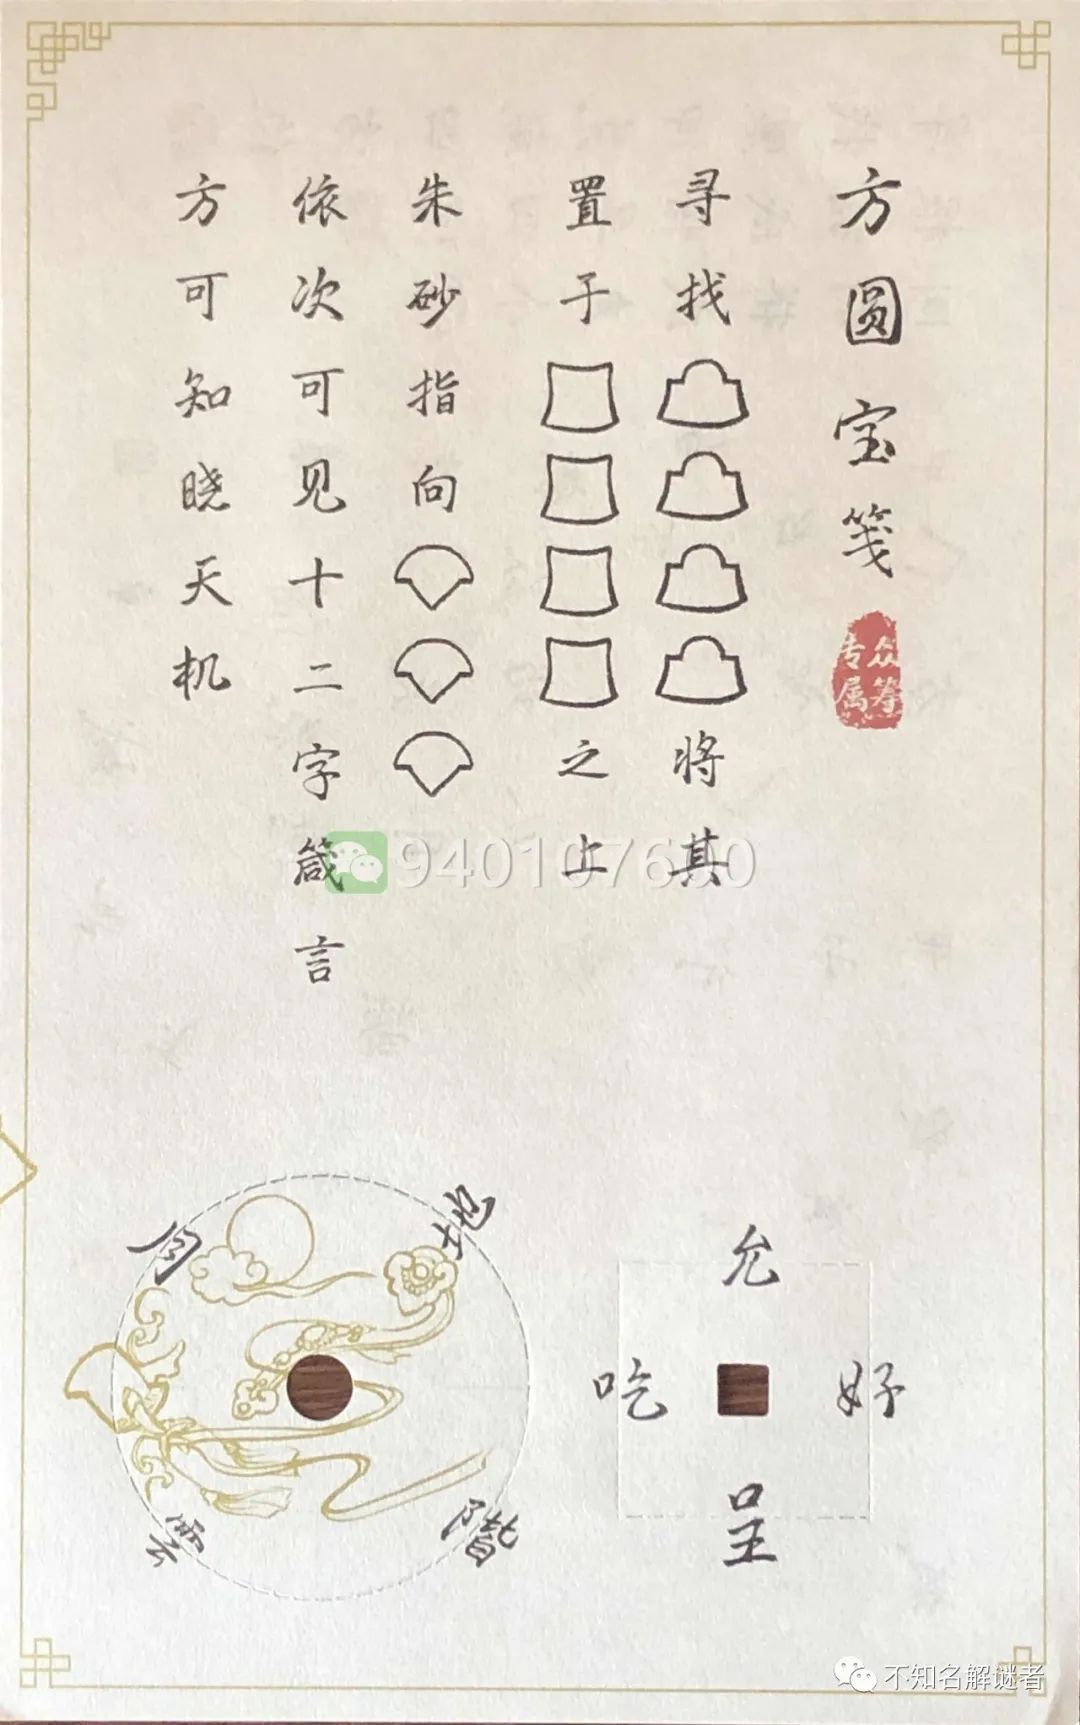 方圆宝笺
众筹
专属
寻找
将其
置于
之上
朱砂指向
依次可见十二字箴言
方可知晓天机
940107600
月
地
雲
階
允
吃
好
呈
不知名解谜者